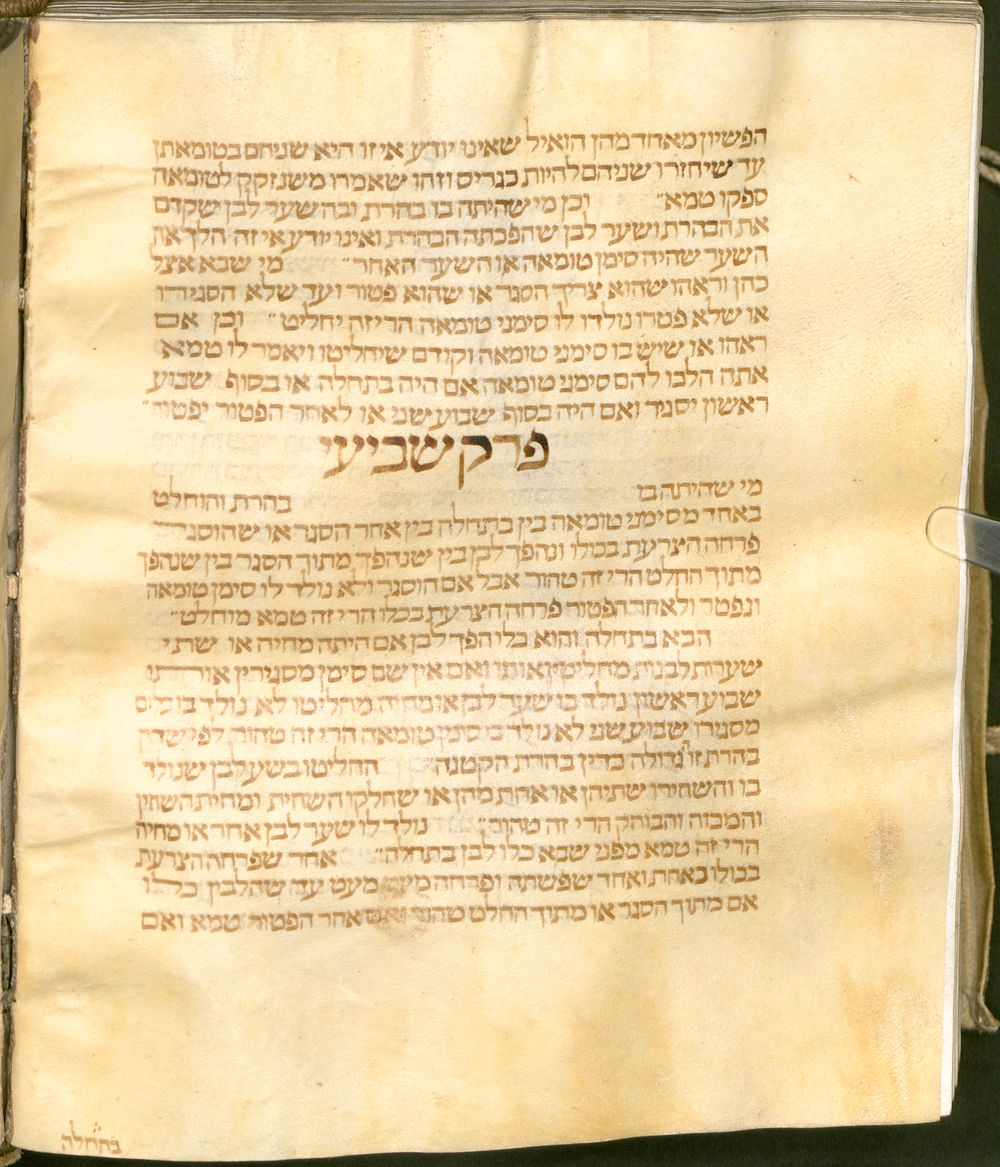 הפשיון מאחד מהן הואיל שאינו יודע אי זו היא שניהם בטומאתן
עד שיחזרו שניהם להיות כגריס וזהו שאמרו משנזקק לטומאה
ספקו טמא״ וכן מי שהיתה בו בהרת ובה שער לבן שקדם
את הבהרת ושער לבן שהפכתה הבהרת ואינו יודע אי זה הלך אם
השער שהיה סימן טומאה או השער האחר״ מי שבא אצל
כהן וראהו שהוא צריך הסגר או שהוא פטור ועד שלא הסגירו
או שלא פטרו נולדו לו סימני טומאה הרי זה יחליט״ וכן אם
ראהו או שיש בו סימני טומאה וקודם שיחליטו ויאמר לו טמא
אתה הלכו להם סימני טומאה אם היה בתחלה או בסוף שבוע
ראשון יסגיר ואם היה בסוף שבוע שני או לאחר הפטור יפטור״
פרק שביעי
מי שהיתה בו בהרת והוחלט
באחד מסימני טומאה בין בתחלה בין אחר הסגר או שהוסגר
פרחה הצרעת בכולו ונהפך לבן בין שנהפך מתוך הסגר בין שנהפך
מתוך החלט הרי זה טהור אבל אם הוסגר ולא נולד לו סימן טומאה
ונפטר ולאחר הפטור פרחה הצרעת בכלו הרי זה טמא מוחלט״
הבא בתחלה והוא כלו הפך לבן אם היתה מחיה או שתי
שערות לבנות מחליטין אותו ואם אין שם סימן מסגירין אותו
שבוע ראשון נולד בו שער לבן או מחיה מחליטו לא נולד בו כלום
מסגירו שבוע שני לא נולד בו סימן טומאה הרי זה טהור לפי שדין
בהרת זו גדולה כדין בהרת הקטנה״ החליטו בשער לבן שנולד
בו והשחירו שתיהן או אחת מהן או שחלקו השחין ומחית השחין
והמכוה והבוהק הרי זה טהור״ נולד לו שער לבן אחר או מחיה
הרי זה טמא מפני שבא כלו לבן בתחלה״ אחד שפרחה הצרעת
בכולו כאחת ואחד שפשתה ופרחה מעט מעט עד שהלבין כולו
אם מתוך הסגר או מתוך החלט טהור ואם אחר הפטור טמא ואם
בתחלה